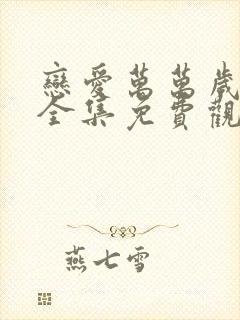 戀愛萬萬歲
全集免費觀
燕七雪